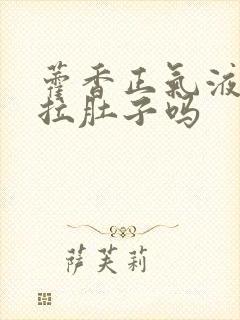 藿香正氣液
拉肚子吗
萨芙莉